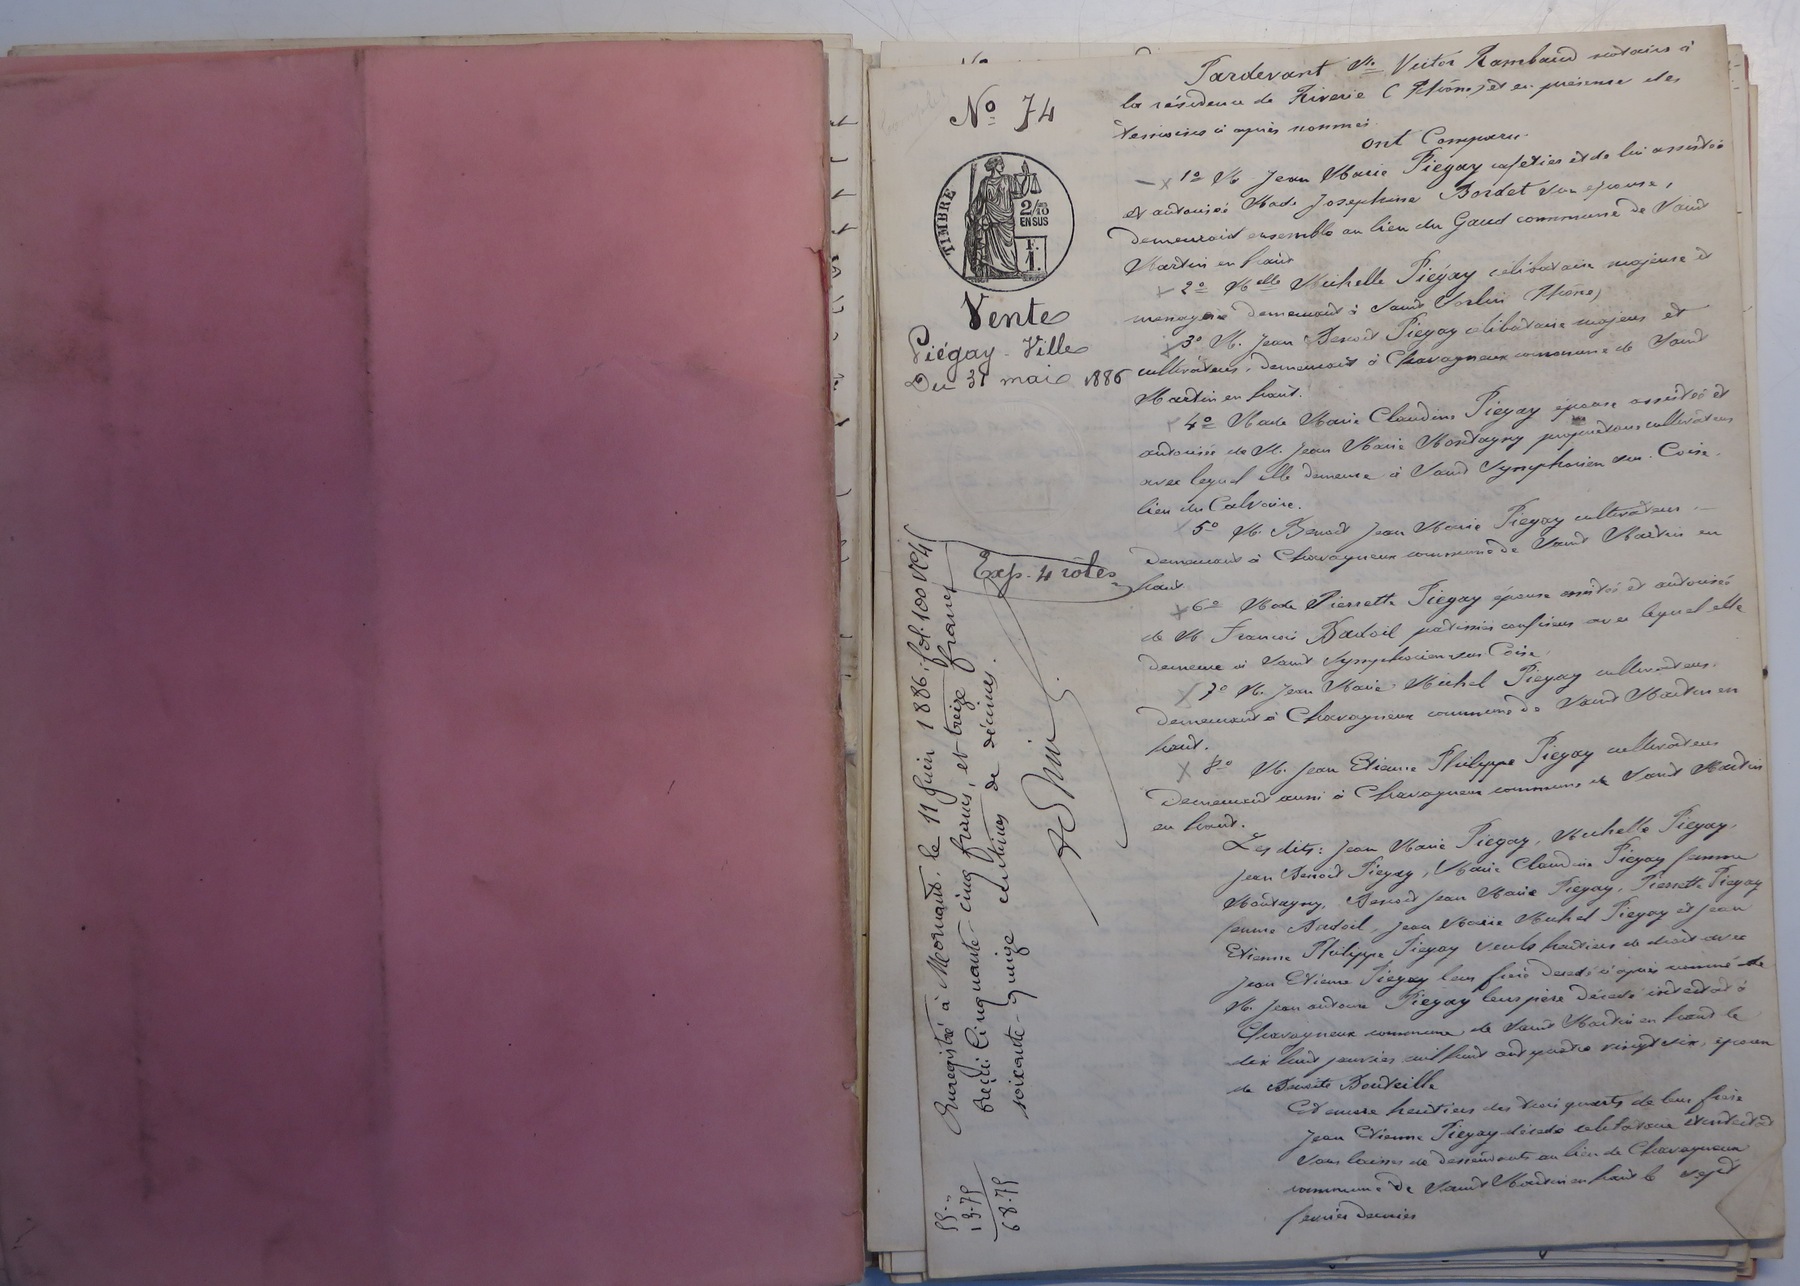 Nº 74
TIMBRE
2/10
EN SUS
1 F.
Vente
Piégay - Ville
Du 31 mai 1886
Exp. 4 rôles
Enregistré à Mornant le 11 Juin 1886, fol. 100 V C 4
Reçu Cinquante-cinq francs, et treize francs
soixante-quinze centimes de décimes.
55 "
13.75
68.75
Pardevant Me Victor Rambaud notaire à
la résidence de Riverie (Rhône) et en présence des
témoins ci après nommés
ont Comparu
1º M. Jean Marie Piégay cafetier et de lui assistée
et autorisée Made Josephine Bordet son épouse,
demeurant ensemble au lieu du Gaud commune de Saint
Martin en haut
2º Melle Michelle Piégay célibataire majeure et
menagère demeurant à Saint Sorlin (Rhône)
3º M. Jean Benoit Piegay célibataire majeur et
cultivateur, demeurant à Chavagneux commune de Saint
Martin en haut.
4º Made Marie Claudine Piegay épouse assistée et
autorisée de M. Jean Marie Montagny propriétaire cultivateur
avec lequel elle demeure à Saint Symphorien sur Coise
lieu du Calvaire.
5º M. Benoit Jean Marie Piegay cultivateur
demeurant à Chavagneux commune de Saint Martin en
haut
6º Made Pierrette Piégay épouse assistée et autorisée
de M. François Badoil pâtissier confiseur avec lequel elle
demeure à Saint Symphorien sur Coise.
7º M. Jean Marie Michel Piegay cultivateur
demeurant à Chavagneux commune de Saint Martin en
haut.
8º M. Jean Etienne Philippe Piegay cultivateur
demeurant aussi à Chavagneux commune de Saint Martin
en haut.
Les dits : Jean Marie Piegay, Michelle Piegay,
Jean Benoit Piegay, Marie Claudine Piegay femme
Montagny, Benoit Jean Marie Piegay, Pierrette Piegay
femme Badoil, Jean Marie Michel Piegay et Jean
Etienne Philippe Piegay seuls héritiers de droit avec
Jean Etienne Piegay leur frère décédé ci après nommé de
M. Jean antoine Piegay leur père décédé intestat à
Chavagneux commune de Saint Martin en haut le
dix huit janvier mil huit cent quatre vingt six, époux
de Benoite Bouteille
Et encore héritiers des trois quarts de leur frère
Jean Etienne Piegay décédé célibataire et intestat
sans laisser de descendants au lieu de Chavagneux
commune de Saint Martin en haut le sept
février dernier